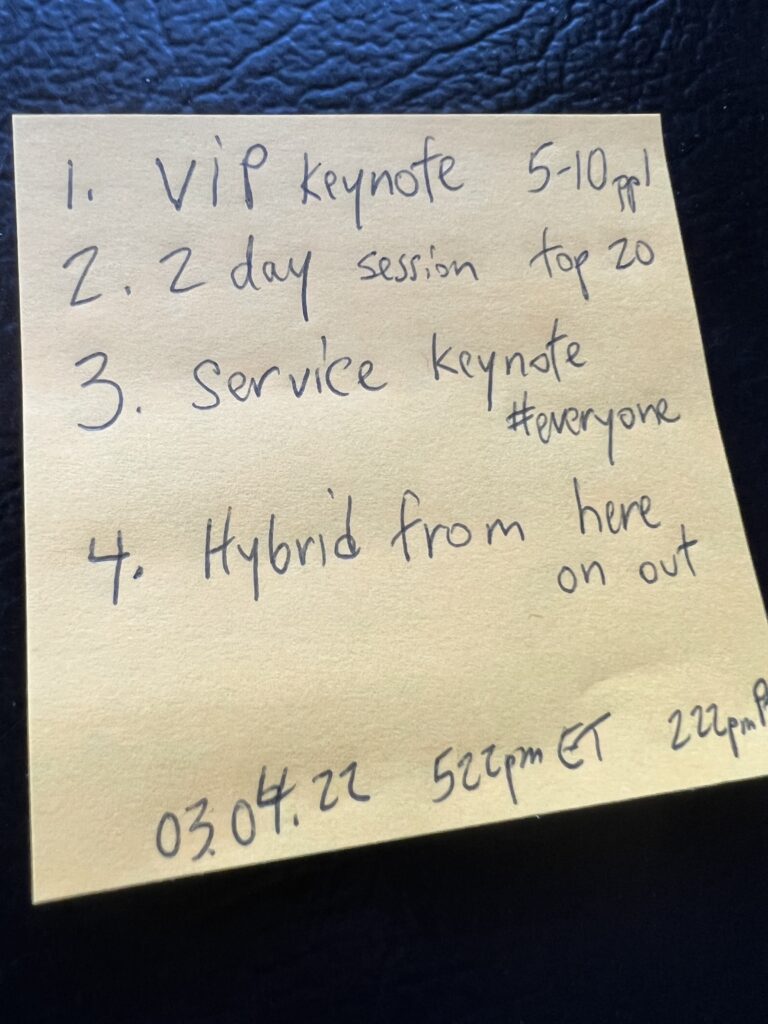 1. ViP keynote 5-10 ppl
2. 2 day session top 20
3. Service keynote
#everyone
4. Hybrid from here
on out
03.04.22 522pm ET 222pm P